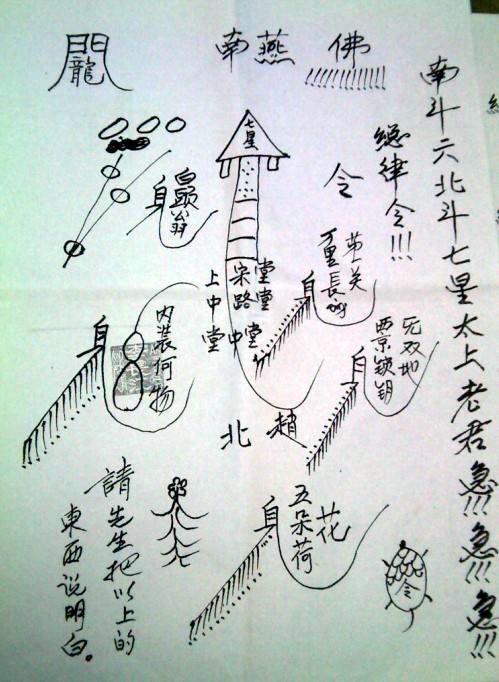 南斗六北斗七星太上老君急!!!急!!!急!!!
總律令!!!
佛
南燕
令
七星
身
翁
身
萬里長
身
西京鎖鑰
无双地
上中堂
宋路中
堂堂堂
身
内裝何物
北趙
身
五朵荷花
令
請先生把以上的
東西说明白。